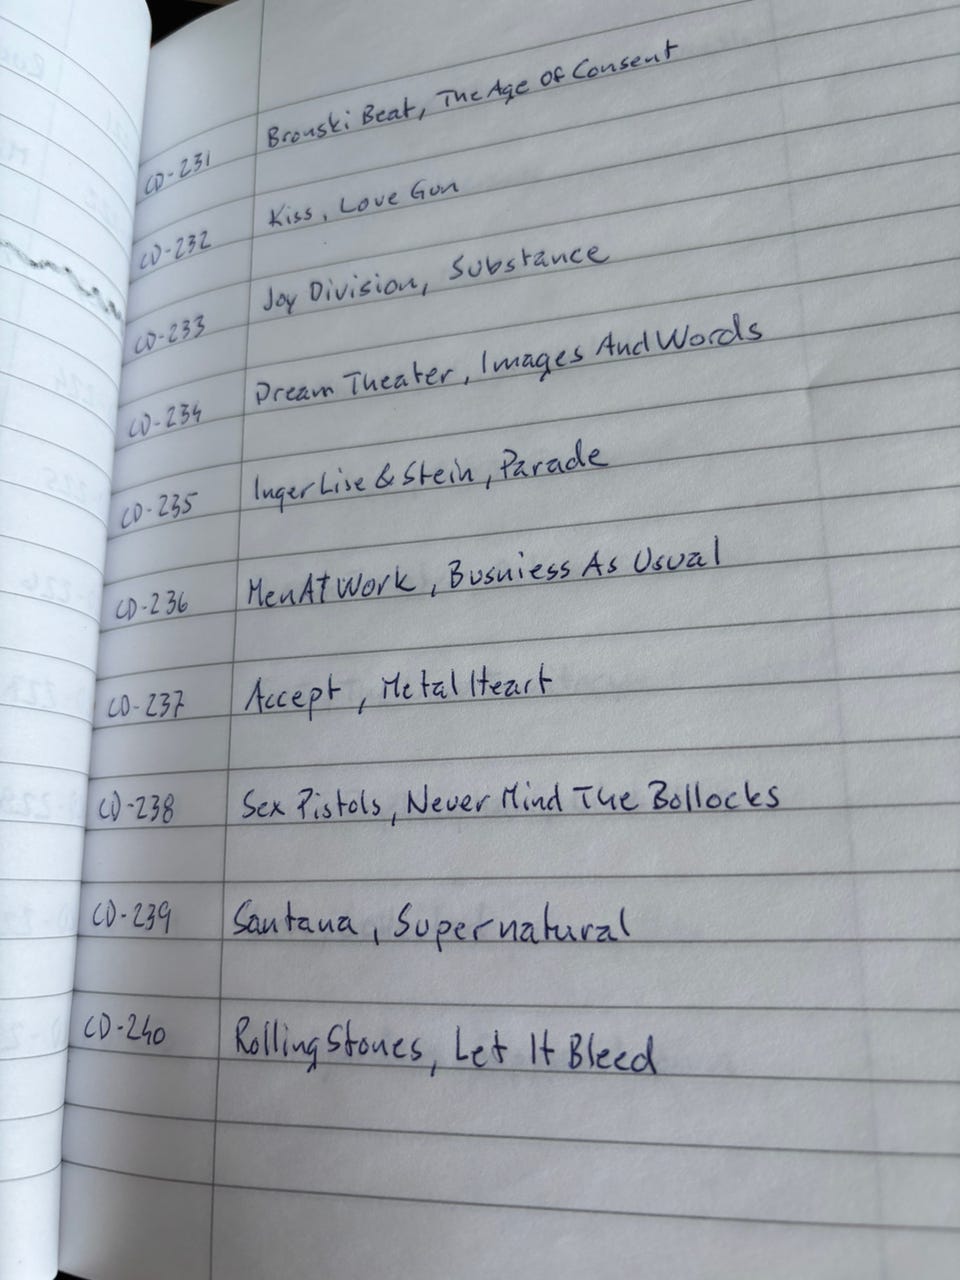 CD-231 Bronski Beat, The Age Of Consent
CD-232 Kiss, Love Gun
CD-233 Joy Division, Substance
CD-234 Dream Theater, Images And Words
CD-235 Inger Lise & Stein, Parade
CD-236 Men At Work, Busniess As Usual
CD-237 Accept, Metal Heart
CD-238 Sex Pistols, Never Mind The Bollocks
CD-239 Santana, Supernatural
CD-240 Rolling Stones, Let It Bleed